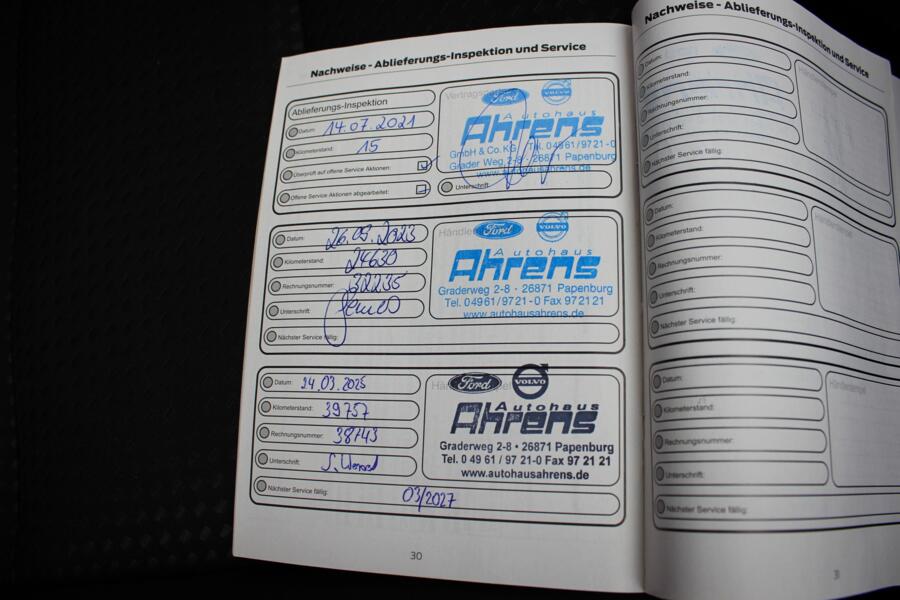 Nachweise - Ablieferungs-Inspektion und Service
Ablieferungs-Inspektion
Datum: 14.07.2021
Kilometerstand: 15
Überprüft auf offene Service Aktionen:
Offene Service Aktionen abgearbeitet:
Ford VOLVO
Autohaus
Ahrens
GmbH & Co. KG Tel. 04961/9721-0
Grader Weg 2-8 · 26871 Papenburg
www.autohausahrens.de
Unterschrift:
Datum: 26.09.2023
Kilometerstand: 24630
Rechnungsnummer: 32235
Unterschrift:
Nächster Service fällig:
Ford VOLVO
Autohaus
Ahrens
Graderweg 2-8 · 26871 Papenburg
Tel. 04961/9721-0 Fax 972121
www.autohausahrens.de
Datum: 24.03.2025
Kilometerstand: 39757
Rechnungsnummer: 38743
Unterschrift:
Nächster Service fällig: 03/2027
Ford VOLVO
Autohaus
Ahrens
Graderweg 2-8 • 26871 Papenburg
Tel. 0 49 61 / 97 21-0 Fax 97 21 21
www.autohausahrens.de
30
Nachweise - Ablieferungs-Inspektion und Service
Datum:
Kilometerstand:
Rechnungsnummer:
Unterschrift:
Nächster Service fällig:
Datum:
Kilometerstand:
Rechnungsnummer:
Unterschrift:
Nächster Service fällig:
Datum:
Kilometerstand:
Rechnungsnummer:
Unterschrift:
Nächster Service fällig:
31